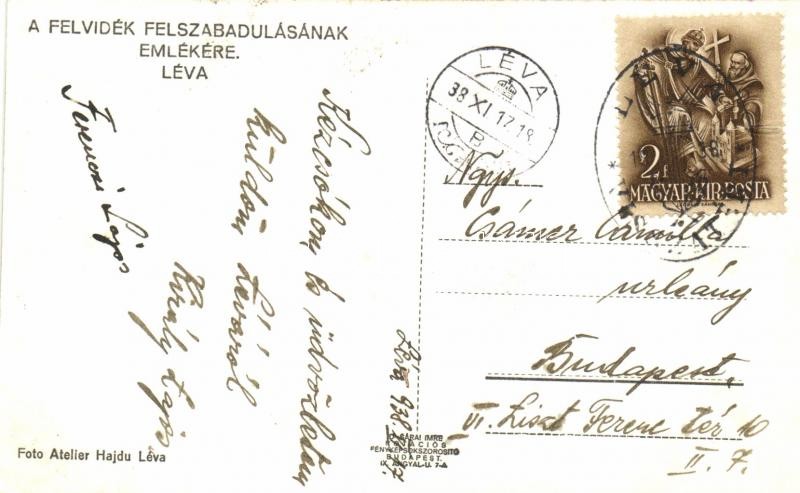 A FELVIDÉK FELSZABADULÁSÁNAK
EMLÉKÉRE.
LÉVA
Kézcsókom és üdvözletem
küldöm Léváról
Király Lajos
Ferenczi Lajos
Léva 938
LÉVA
38 XI 17.18
B
2 f
MAGYAR·KIR·POSTA
Ngys.
Csámer
urleány
Budapest.
VI. Liszt Ferenc tér 10
II. 7.
Foto Atelier Hajdu Léva
SÁRAI IMRE
FÉNYKÉPSOKSZOROSITÓ
BUDAPEST,
IX. ANGYAL-U. 7-A